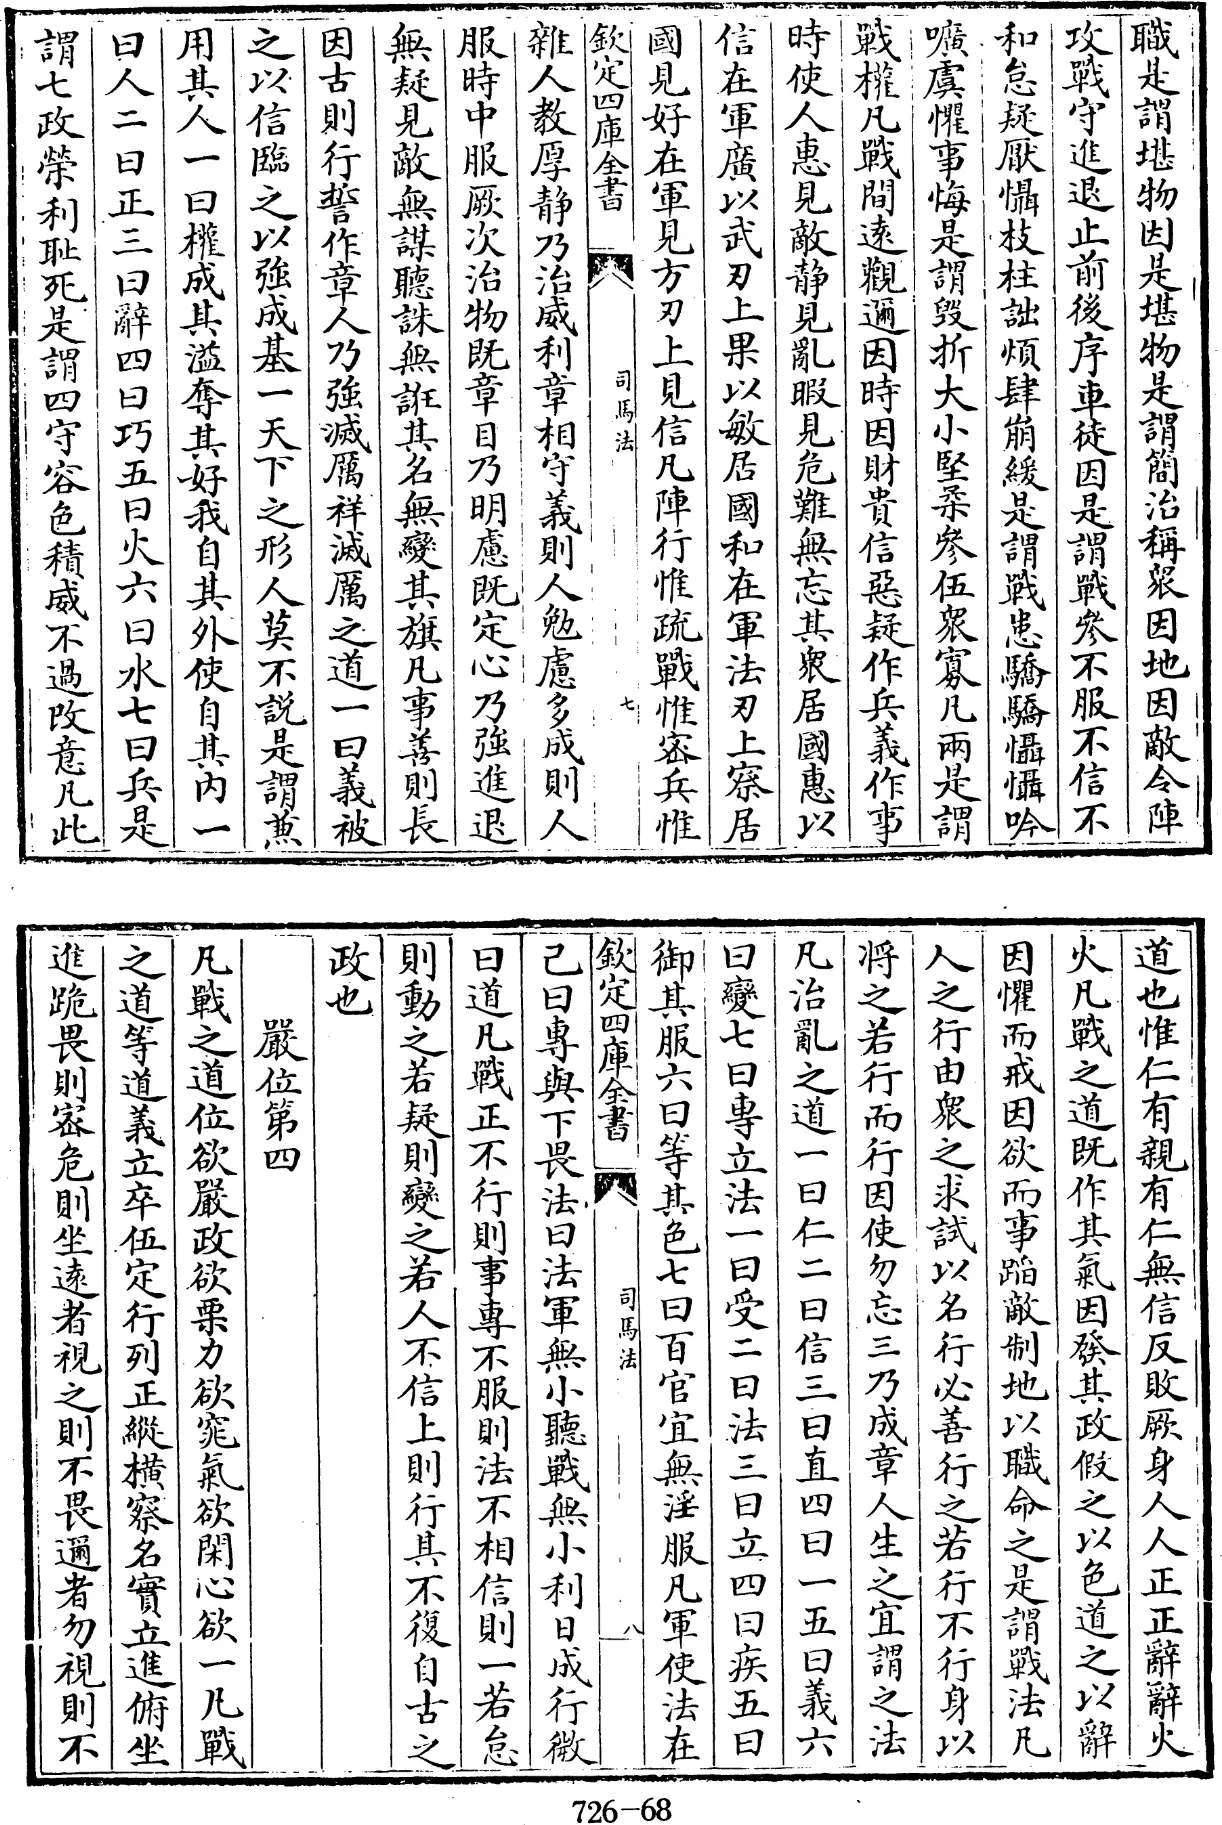 職是謂堪物因是堪物是謂簡治稱衆因地因敵令陣
攻戰守進退止前後序車徒因是謂戰參不服不信不
和怠疑厭懾枝柱詘煩肆崩緩是謂戰患驕驕懾懾吟
嚝虞懼事悔是謂毀折大小堅柔參伍衆寡凡兩是謂
戰權凡戰間遠觀邇因時因財貴信惡疑作兵義作事
時使人惠見敵静見亂暇見危難無忘其衆居國惠以
信在軍廣以武刃上果以敏居國和在軍法刃上察居
國見好在軍見方刃上見信凡陣行惟疏戰惟密兵惟
欽定四庫全書 司馬法 七
雜人教厚静乃治威利章相守義則人勉慮多成則人
服時中服厥次治物既章目乃明慮既定心乃強進退
無疑見敵無謀聽誅無誑其名無變其旗凡事善則長
因古則行誓作章人乃強滅厲祥滅厲之道一曰義被
之以信臨之以強成基一天下之形人莫不說是謂兼
用其人一曰權成其溢奪其好我自其外使自其内一
曰人二曰正三曰辭四曰巧五曰火六曰水七曰兵是
謂七政榮利恥死是謂四守容色積威不過改意凡此
道也惟仁有親有仁無信反敗厥身人人正正辭辭火
火凡戰之道既作其氣因發其政假之以色道之以辭
因懼而戒因欲而事蹈敵制地以職命之是謂戰法凡
人之行由衆之求試以名行必善行之若行不行身以
将之若行而行因使勿忘三乃成章人生之宜謂之法
凡治亂之道一曰仁二曰信三曰直四曰一五曰義六
曰變七曰專立法一曰受二曰法三曰立四曰疾五曰
御其服六曰等其色七曰百官宜無淫服凡軍使法在
欽定四庫全書 司馬法 八
己曰專與下畏法曰法軍無小聽戰無小利日成行微
曰道凡戰正不行則事專不服則法不相信則一若怠
則動之若疑則變之若人不信上則行其不復自古之
政也
嚴位第四
凡戰之道位欲嚴政欲栗力欲窕氣欲閑心欲一凡戰
之道等道義立卒伍定行列正縱横察名實立進俯坐
進跪畏則密危則坐遠者視之則不畏邇者勿視則不
726-68